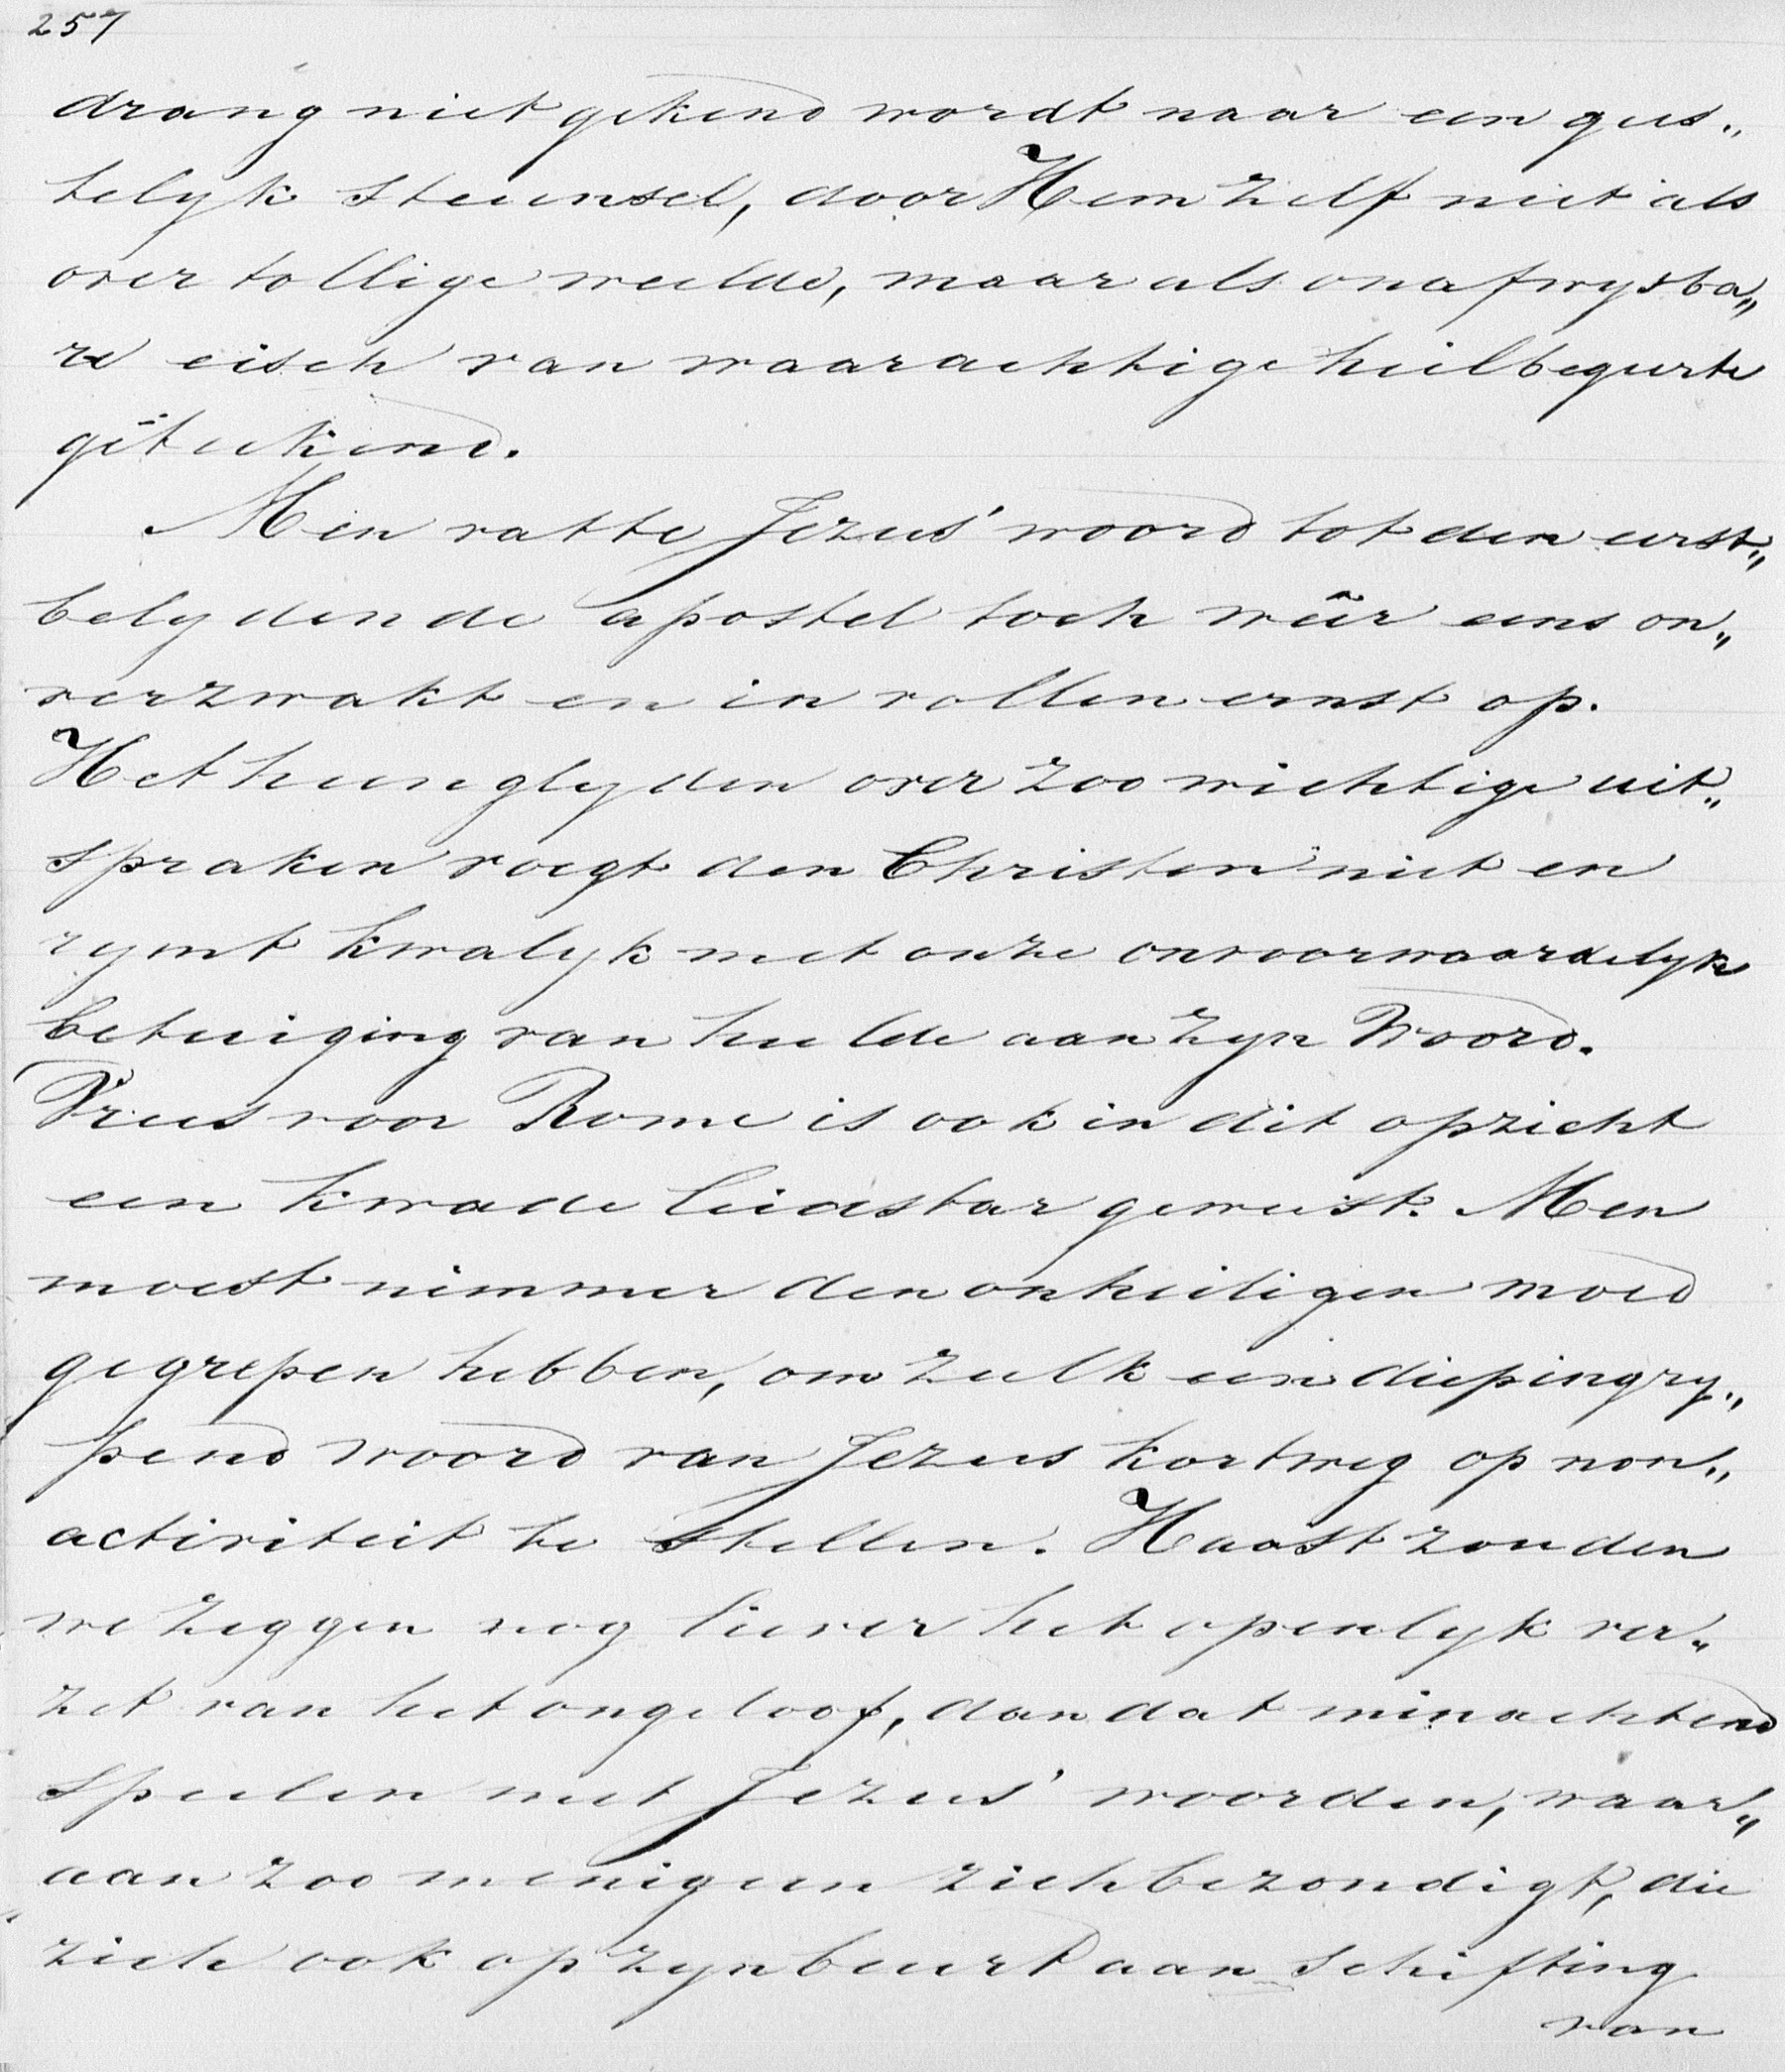 257
drang niet gekend wordt naar een gees„
telyk steunsel, door Hem zelf niet als
overtollige weelde, maar als onafwysba„
re eisch van waarachtige heilbegeerte
geteekend.
Men vatte Jezus' woord tot den eerst„
belydende apostel toch wêer eens on„
verzwakt en in vollen ernst op.
Het heenglyden over zoo wichtige uit„
spraken voegt den Christen niet en
rymt kwalyk met onze onvoorwaardelyke
betuiging van hulde aan zyn Woord.
Vrees voor Rome is ook in dit opzicht
een kwade leidstar geweest. Men
moest nimmer den onheiligen moed
gegrepen hebben, om zulk een diepingry„
pend woord van Jezus kortweg op non„
activiteit te stellen. Haast zouden
we zeggen nog liever het openlyk ver„
zet van het ongeloof, dan dat minachtend
speelen met Jezus' woorden, waar„
aan zoo menigeen zich bezondigt, die
zich ook op zyn beurt aan schifting
van